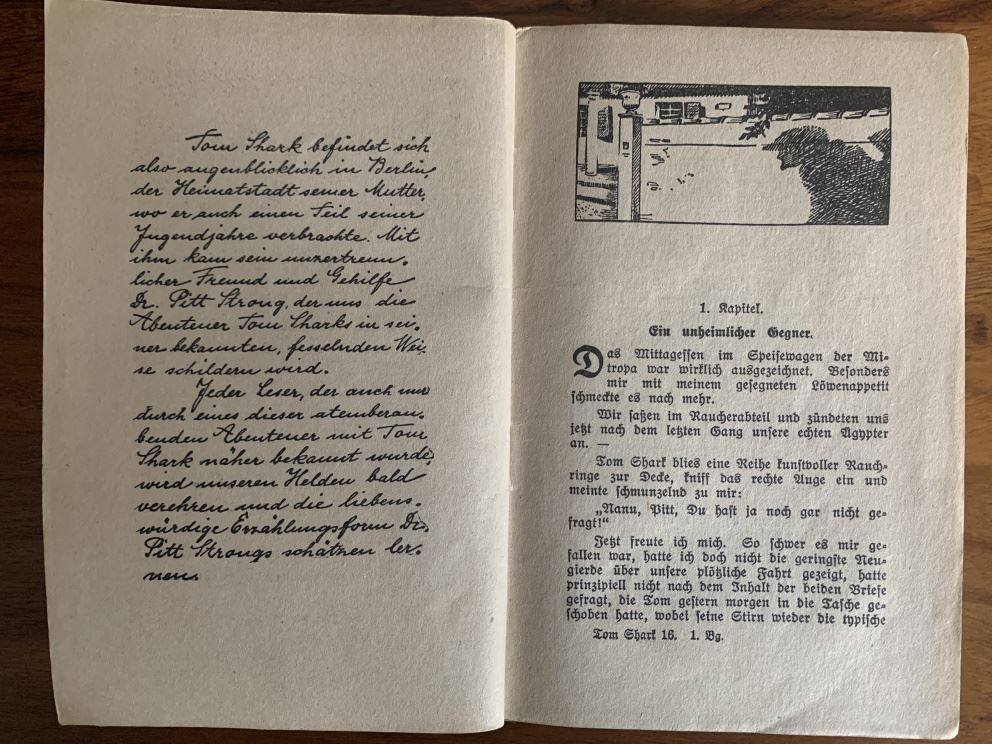 Tom Shark befindet sich
also augenblicklich in Berlin,
der Heimatstadt seiner Mutter,
wo er auch einen Teil seiner
Jugendjahre verbrachte. Mit
ihm kam sein unzertrenn-
licher Freund und Gehilfe
Dr. Pitt Strong, der uns die
Abenteuer Tom Sharks in sei-
ner bekannten, fesselnden Wei-
se schildern wird.
Jeder Leser, der auch nur
durch eines dieser atemberau-
benden Abenteuer mit Tom
Shark näher bekannt wurde,
wird unseren Helden bald
verehren und die liebens-
würdige Erzählungsform Dr.
Pitt Strongs schätzen ler-
nen.
1. Kapitel.
Ein unheimlicher Gegner.
Das Mittagessen im Speisewagen der Mi-
tropa war wirklich ausgezeichnet. Besonders
mir mit meinem gesegneten Löwenappetit
schmeckte es nach mehr.
Wir saßen im Raucherabteil und zündeten uns
jetzt nach dem letzten Gang unsere echten Ägypter
an. —
Tom Shark blies eine Reihe kunstvoller Rauch-
ringe zur Decke, kniff das rechte Auge ein und
meinte schmunzelnd zu mir:
„Nanu, Pitt, Du hast ja noch gar nicht ge-
fragt!“
Jetzt freute ich mich. So schwer es mir ge-
fallen war, hatte ich doch nicht die geringste Neu-
gierde über unsere plötzliche Fahrt gezeigt, hatte
prinzipiell nicht nach dem Inhalt der beiden Briefe
gefragt, die Tom gestern morgen in die Tasche ge-
schoben hatte, wobei seine Stirn wieder die typische
Tom Shark 16. 1. Bg.